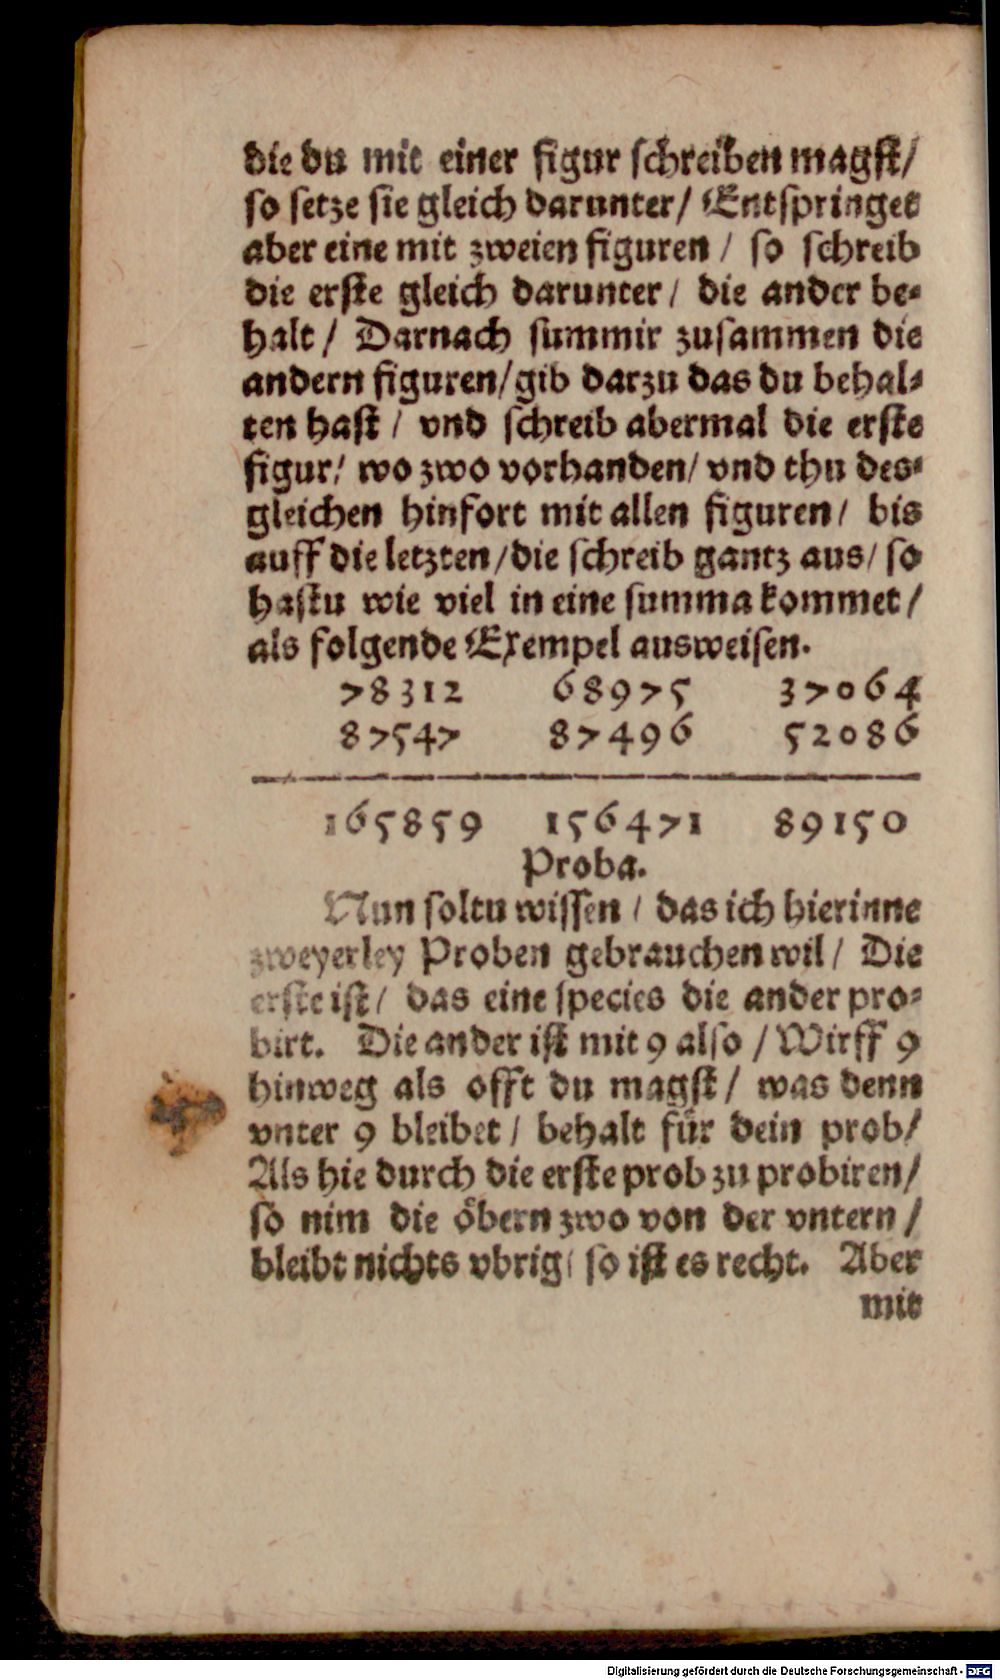 die du mit einer figur schreiben magst/
so setze sie gleich darunter/ Entspringet
aber eine mit zweien figuren / so schreib
die erste gleich darunter/ die ander be-
halt/ Darnach summir zusammen die
andern figuren/gib darzu das du behal-
ten hast / vnd schreib abermal die erste
figur/ wo zwo vorhanden/ vnd thu des-
gleichen hinfort mit allen figuren/ bis
auff die letzten/die schreib gantz aus/ so
hastu wie viel in eine summa kommet/
als folgende Exempel ausweisen.
78312 68975 37064
87547 87496 52086
165859 156471 89150
Proba.
Nun soltu wissen / das ich hierinne
zweyerley Proben gebrauchen wil/ Die
erste ist/ das eine species die ander pro-
birt. Die ander ist mit 9 also / Wirff 9
hinweg als offt du magst/ was denn
vnter 9 bleibet/ behalt für dein prob/
Als hie durch die erste prob zu probiren/
so nim die öbern zwo von der vntern /
bleibt nichts vbrig/ so ist es recht. Aber
mit
Digitalisierung gefördert durch die Deutsche Forschungsgemeinschaft - DFG